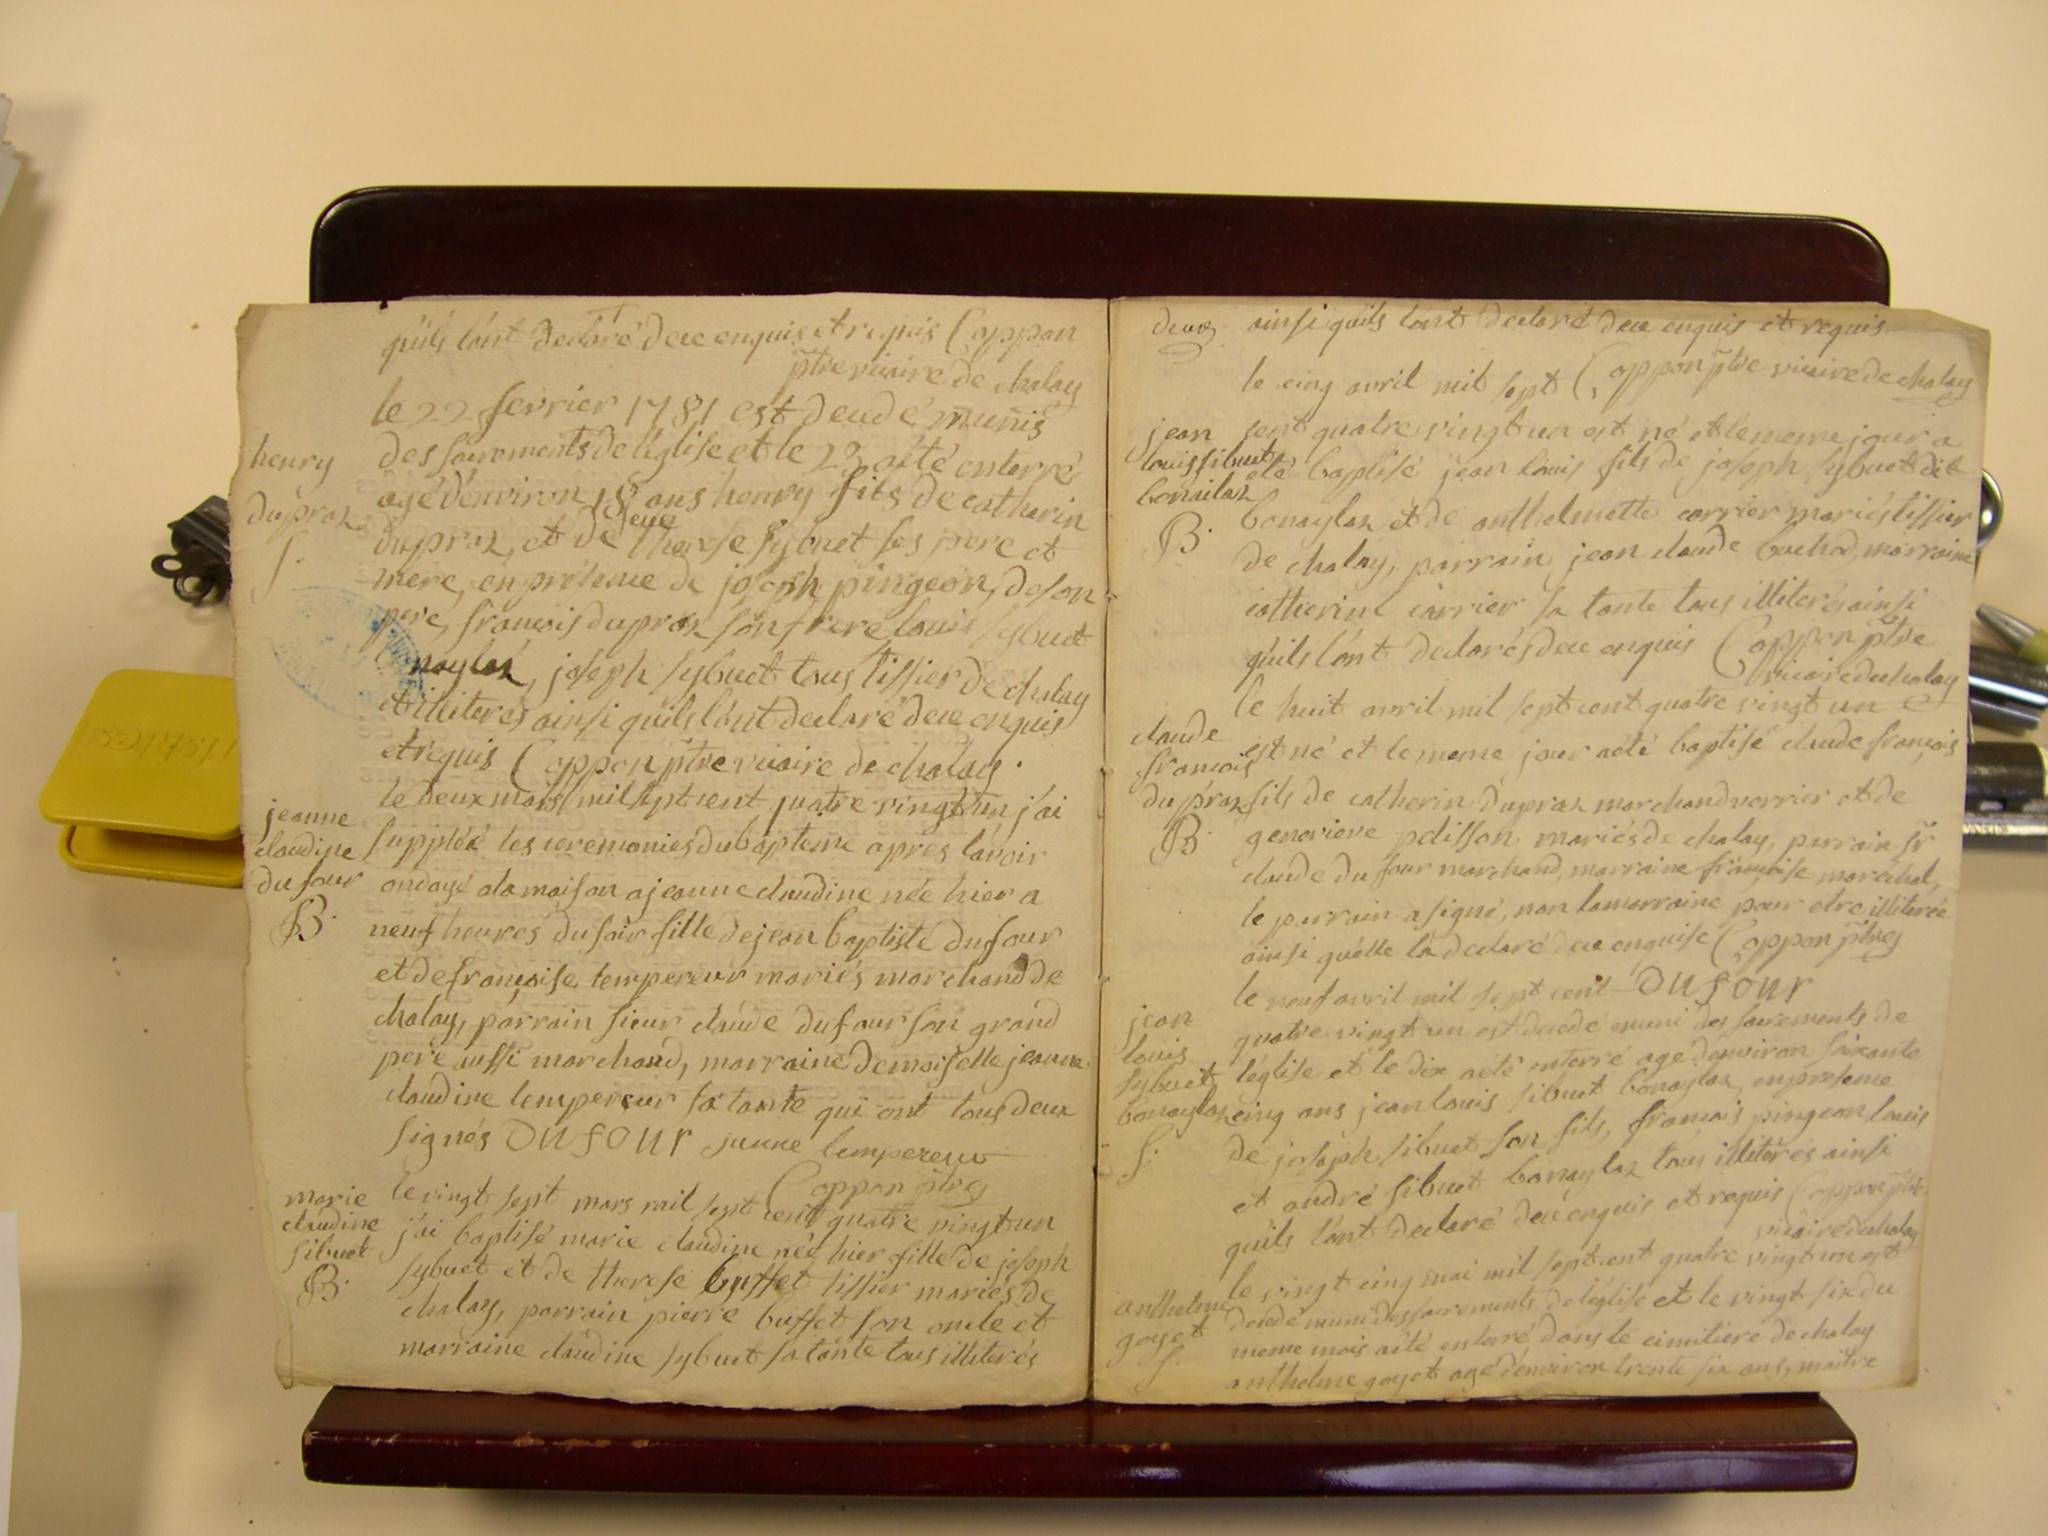 quils lont declaré de ce enquis et requis Coppon
ptre vicaire de chalay
le 22 fevrier 1781 est decedé munis
henry
dupraz
S.
des sacrements de l'eglise et le 23 a été enterré
agé d'environ 18 ans henry fils de catherin
dupraz, et de therese sybuet ses pere et
mere, en présence de joseph pingeon, de son
pere, francois dupraz son frere louis sybuet
joseph sybuet tous tissier de chalay
et illiterés ainsi quils l'ont declaré de ce enquis
et requis Coppon ptre vicaire de chalay.
jeanne
claudine
dufour
B.
le deux mars mil sept cent quatre vingt un j'ai
supplée les ceremonies du bapteme apres lavoir
ondoyé a la maison a jeanne claudine née hier a
neuf heures du soir fille de jean baptiste dufour
et de francoise lempereur mariés marchand de
chalay, parrain sieur claude dufour son grand
pere aussi marchand, marraine demoiselle jeanne
claudine lempereur sa tante qui ont tous deux
signés DUFOUR jeanne lempereur
Coppon ptre
marie
claudine
sibuet
B.
le vingt sept mars mil sept cent quatre vingt un
j'ai baptisé marie claudine née hier fille de joseph
sybuet et de therese buffet tissier mariés de
chalay, parrain pierre buffet son oncle et
marraine claudine sybuet sa tante tous illiterés
deux
ainsi quils lont declaré de ce enquis et requis
Coppon ptre vicaire de chalay
jean
louis sibuet
bonailaz
B.
le cinq avril mil sept
cent quatre vingt un est né et le meme jour a
eté baptisé jean louis fils de joseph sybuet dit
bonaylaz et de anthelmette carrier mariés tissier
de chalay, parrain jean claude marraine
catherine carrier sa tante tous illiterés ainsi
quils l'ont declarés de ce enquis Coppon ptre
vicaire de chalay
claude
francois
dupraz
B.
le huit avril mil sept cent quatre vingt un
est né et le meme jour a été baptisé claude francois
fils de catherin dupraz marchand verrier et de
genevieve pelisson mariés de chalay, parrain sr
claude dufour marchand, marraine francoise maréchal,
le parrain a signé, non la marraine pour etre illiterée
ainsi quelle la declaré de ce enquise Coppon ptre
DUFOUR
jean
louis
sybuet
bonaylaz
S.
le neuf avril mil sept cent
quatre vingt un est decedé muni des sacrements de
l'église et le dix a été enterré agé d'environ soixante
cinq ans jean louis sibuet bonaylaz, en presence
de joseph sibuet son fils, francois pingeon, louis
et andré sibuet bonaylaz tous illiterés ainsi
quils l'ont declaré de ce enquis et requis Coppon ptre
vicaire de chalay
anthelme
goyet
S.
le vingt cinq mai mil sept cent quatre vingt un est
decedé muni des sacrements de l'église et le vingt six du
meme mois a été enterré dans le cimitiere de chalay
anthelme goyet agé d'environ trente six ans, maitre